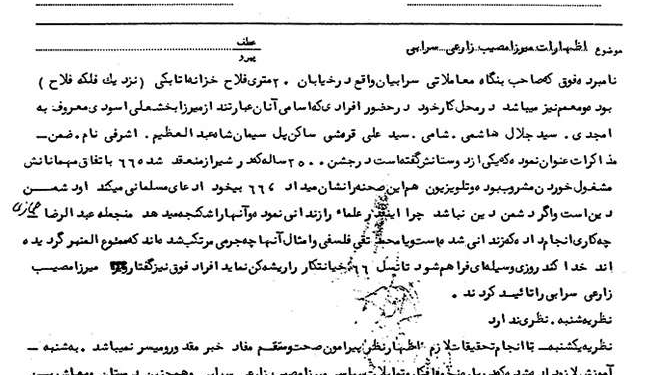 موضوع اظهارات میرزا مصیب زارعی سرابی
عطف
پیرو
نامبرده فوق که صاحب بنگاه معاملاتی سرابیان واقع در خیابان ۲۰ متری فلاح خزانه اتابکی (نزدیک فلکه فلاح)
بوده و معمم نیز میباشد در محل کار خود در حضور افرادی که اسامی آنان عبارتند از میرزا بخشعلی اسودی معروف به
امجدی . سید جلال هاشمی . شامی . سید علی قرشی ساکن پل سیمان شاه عبدالعظیم . اشرفی نام . ضمن
مذاکرات عنوان نموده که یکی از دوستانش گفته است در جشن ۲۵۰۰ ساله که در شیراز منعقد شده ۶۶ با تفاق مهمانانش
مشغول خوردن مشروب بوده و تلویزیون هم این صحنه را نشان میداد ۶۶ بیخود ادعای مسلمانی میکند او دشمن
دین است و اگر دشمن دین نباشد چرا اینقدر علماء را زندانی نموده و آنها را شکنجه میدهد منجمله عبدالرضا حجازی
چه کاری انجام داده که زندانی شده است و یا محمد تقی فلسفی و امثال آنها چه جرمی مرتکب شده اند که ممنوع المنبر گردیده
اند خدا کند روزی وسیله ای فراهم شود تا نسل ۶۶ خیانتکار را ریشه کن نماید افراد فوق نیز گفتار میرزا مصیب
زارعی سرابی را تائید کردند .
نظریه شنبه . نظری ندارد
نظریه یکشنبه - تا انجام تحقیقات لازم اظهار نظر پیرامون صحت و سقم مفاد خبر مقدور و میسر نمیباشد . به شنبه
آموزش لازم داده شد که در باره